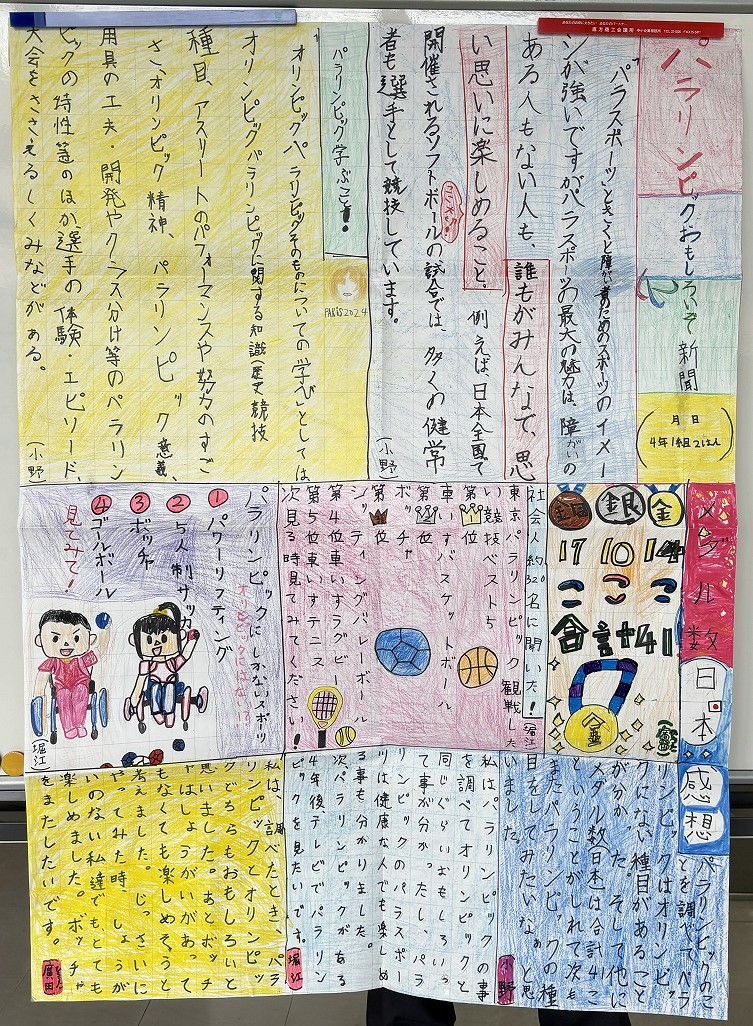 パラリンピックおもしろいぞ新聞
月 日
4年1組2はん
パラスポーツときくと障がい者のためのスポーツのイメー
ジが強いですがパラスポーツの最大の魅力は、障がいの
ある人もない人も、誰もがみんなで、思
い思いに楽しめること。例えば、日本全国で
開催されるソフトボールの試合では、多くの健常
者も選手として競技しています。
(小野)
パラリンピック学ぶこと!
PARIS2024
オリンピックパラリンピックそのものについての学び」としては
オリンピックパラリンピックに関する知識(歴史 競技
種目、アスリートのパフォーマンスや努力のすご
さ、オリンピック精神、パラリンピック意義、
用具の工夫・開発やクラス分け等のパラリン
ピックの特性等のほか選手の体験・エピソード、
大会をささえるしくみなどがある。
(小野)
メダル数日本
金 14こ
銀 10こ
銅 17こ
合計41こ
金
社会人約320名に聞いた!
(堀江)
東京パラリンピック観戦した
い競技ベスト5
第1位
車いすバスケットボール
第2位
ボッチャ
第3位
シッティングバレーボール
第4位車いすラグビー
第5位車いすテニス
次見る時見てみてください!
パラリンピックにしかないスポーツ
オリンピックにはない!?
①パワーリフティング
②5人制サッカー
③ボッチャ
④ゴールボール
見てみて!
堀江
感想
パラリンピックのこ
とを調べて、パラ
リンピックはオリンピッ
クにない種目があること
が分かった。そして他に
メダル数(日本)は合計41こ
ということがしれて次も
またパラリンピックの種
目をしてみたいなぁと思
いました。
小野
私はパラリンピックの事
を調べてオリンピックと
同じぐらいおもしろいっ
て事が分かったし、パラ
リンピックのパラスポー
ツは健康な人でも楽しめ
る事も分かりました。
次パラリンピックがある
4年後、テレビでパラリン
ピックを見たいです。
堀江
私は、調べたとき、パラ
リンピックとオリンピッ
クどちらもおもしろいと
思いました。あとボッチ
ャはしょうがいがあって
もなくても楽しめそうと
考えました。じっさいに
やってみた時、しょうが
いのない私達でも、とても
楽しめました。ボッチャ
をまたしたいです。
廣田